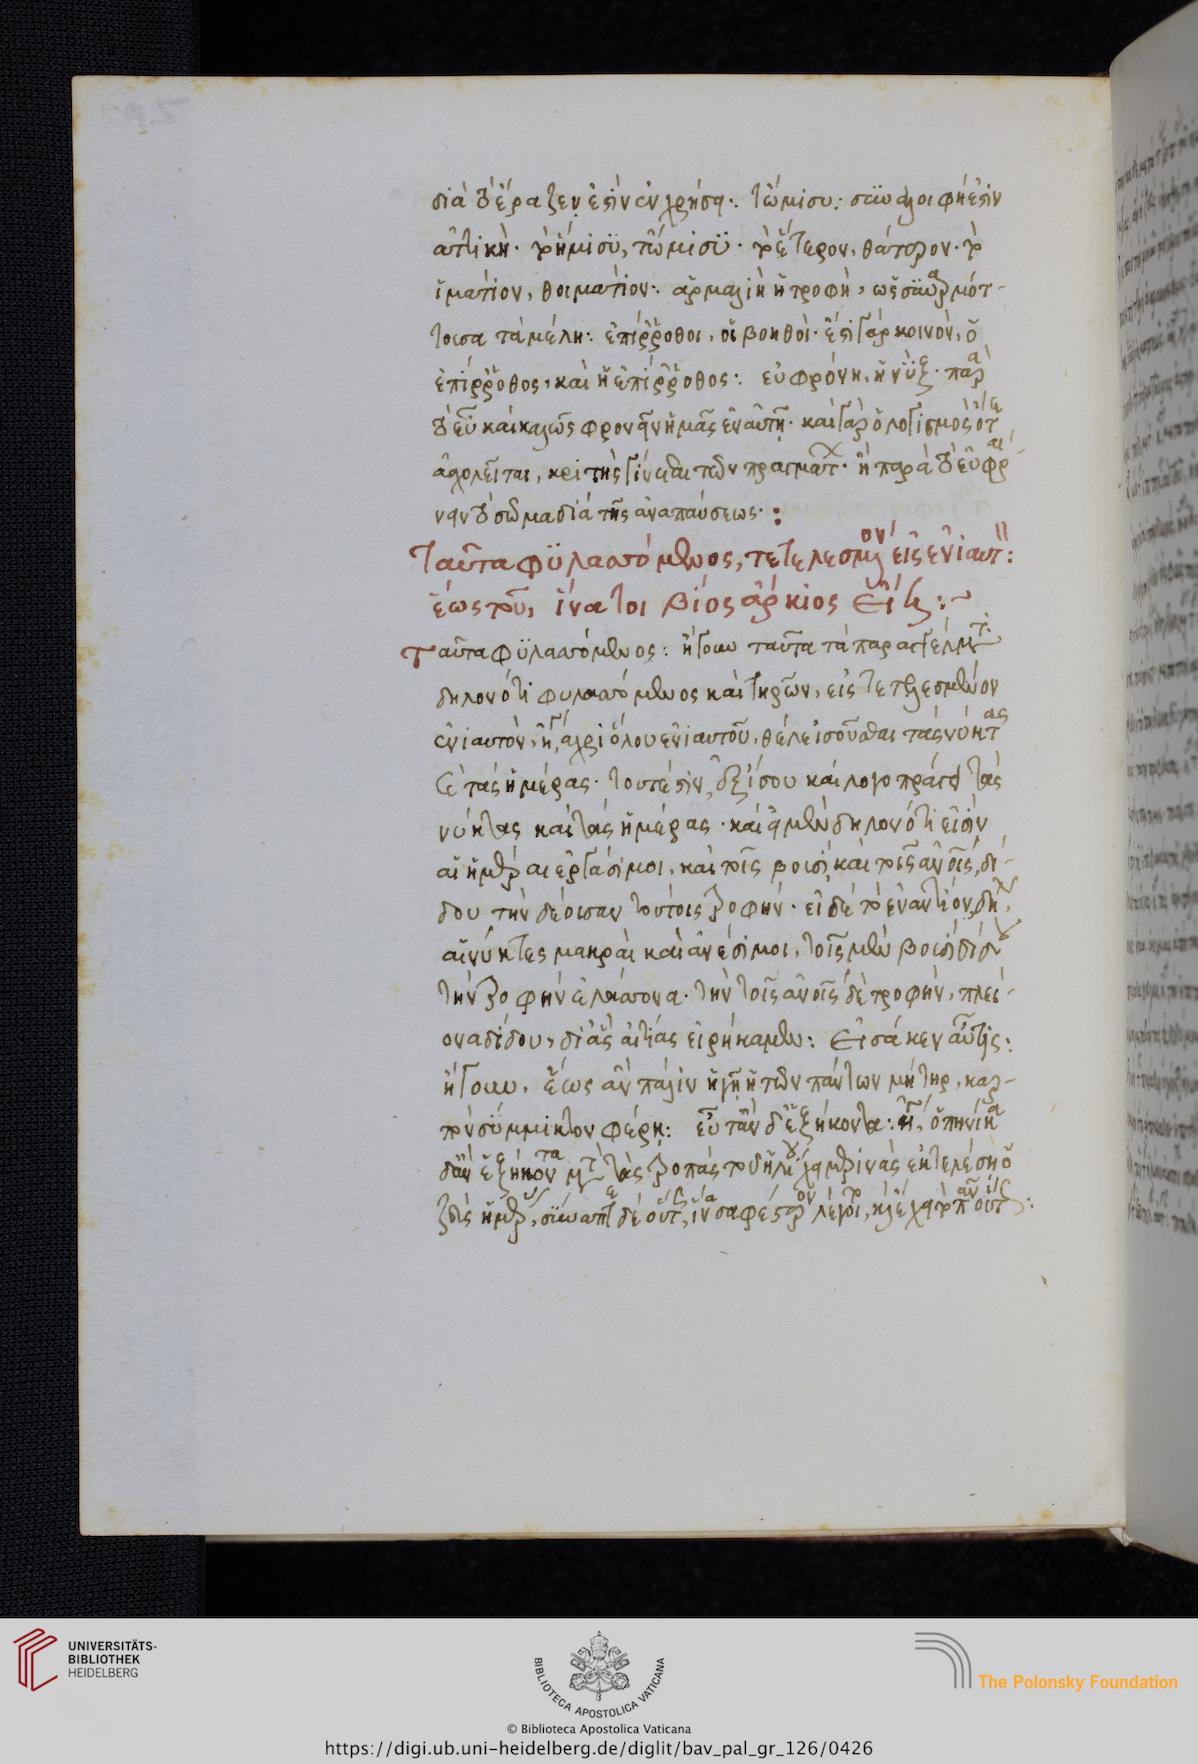 σία τὸ ἔραζεν ἐστὶν ἐν χρήσει. τὤμισυ: συναλοιφή ἐστὶν
ἀττικὴ. τὸ ἥμισυ, τὤμισυ. τὸ ἕτερον, θάτερον. τὸ
ἱμάτιον, θοιμάτιον: ἁρμαλιὴ ἡ τροφὴ, ὡς συναρμότ-
τουσα τὰ μέλη: ἐπίρροθοι, οἱ βοηθοὶ. ἔστι γὰρ κοινὸν, ὁ
ἐπίρροθος, καὶ ἡ ἐπίρροθος: εὐφρόνη, ἡ νὺξ. παρὰ
τὸ εὖ καὶ καλῶς φρονεῖν ἡμᾶς ἐν αὐτῇ. καὶ γὰρ ὁ λογισμὸς τότε
ἀσχολεῖται, κριτὴς γίνεσθαι τῶν πραγμάτων. ἢ παρὰ τὸ εὐφραί-
νειν τὸ σῶμα διὰ τῆς ἀναπαύσεως:
Ταῦτα φυλασσόμενος, τετελεσμένον εἰς ἐνιαυτ:
ἕως τοῦ, ἵνα τοι βίος ἄρκιος εἴη:
Ταῦτα φυλασσόμενος: ἤγουν ταῦτα τὰ παραγγέλματα
δηλονότι φυλασσόμενος καὶ τηρῶν, εἰς τετελεσμένον
ἐνιαυτὸν, ἤγουν ἄχρι ὅλου ἐνιαυτοῦ, θέλε ἰσοῦσθαι τὰς νύκτας
καὶ τὰς ἡμέρας. τουτέστιν, ἐξίσου καὶ λογοπράγει τὰς
νύκτας καὶ τὰς ἡμέρας. καὶ εἰ μὲν δηλονότι εἰσὶν
αἱ ἡμέραι ἐργάσιμοι, καὶ τοῖς βουσὶ καὶ τοῖς ἀνοις, δί-
δου τὴν δέουσαν τούτοις τροφήν. εἰ δὲ τὸ ἐναντίον, δηλ
αἱ νύκτες μακραὶ καὶ ἀνέσιμοι, τοῖς μὲν βουσὶ δίδου
τὴν τροφὴν ἐλάσσονα. τὴν τοῖς ἀνοις δὲ τροφὴν, πλεί-
ονα δίδου, δι' ἃς αἰτίας εἰρήκαμεν: Εἰσόκεν αὖτις:
ἤγουν, ἕως ἂν πάλιν ἡ γῆ ἡ τῶν πάντων μήτηρ, καρ-
πὸν σύμμικτον φέρῃ: εὖτ' ἂν δ' ἑξήκοντα: ἤγουν, ὁπηνίκα
δ' ἂν ἑξήκοντα μετὰ τὰς τροπὰς τοῦ ἡλίου χειμερινὰς ἐκτελέσῃ ὁ
ζεὺς ἡμέρας,